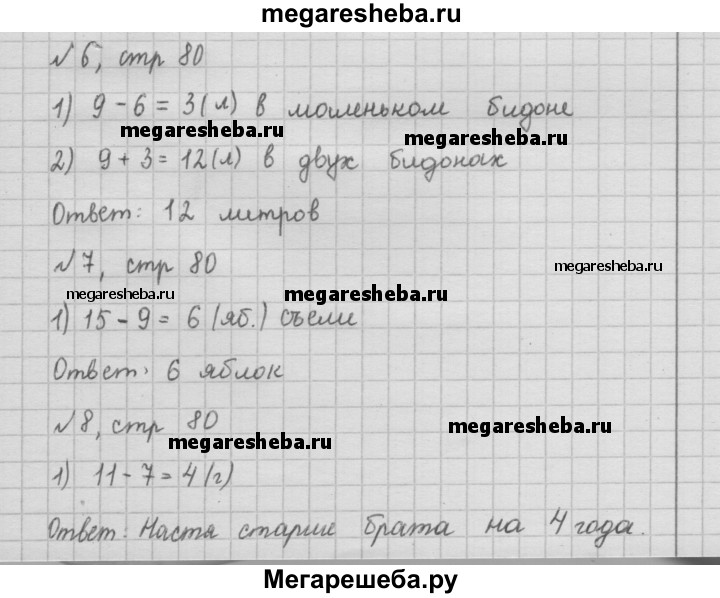 megaresheba.ru
№ 6, стр 80
1) 9 - 6 = 3 (л) в маленьком бидоне
megaresheba.ru megaresheba.ru
2) 9 + 3 = 12 (л) в двух бидонах
Ответ: 12 литров
№ 7, стр 80
megaresheba.ru
megaresheba.ru megaresheba.ru
1) 15 - 9 = 6 (яб.) съели
Ответ: 6 яблок
№ 8, стр 80
megaresheba.ru megaresheba.ru
1) 11 - 7 = 4 (г)
Ответ: Настя старше брата на 4 года.
Мегарешеба.ру